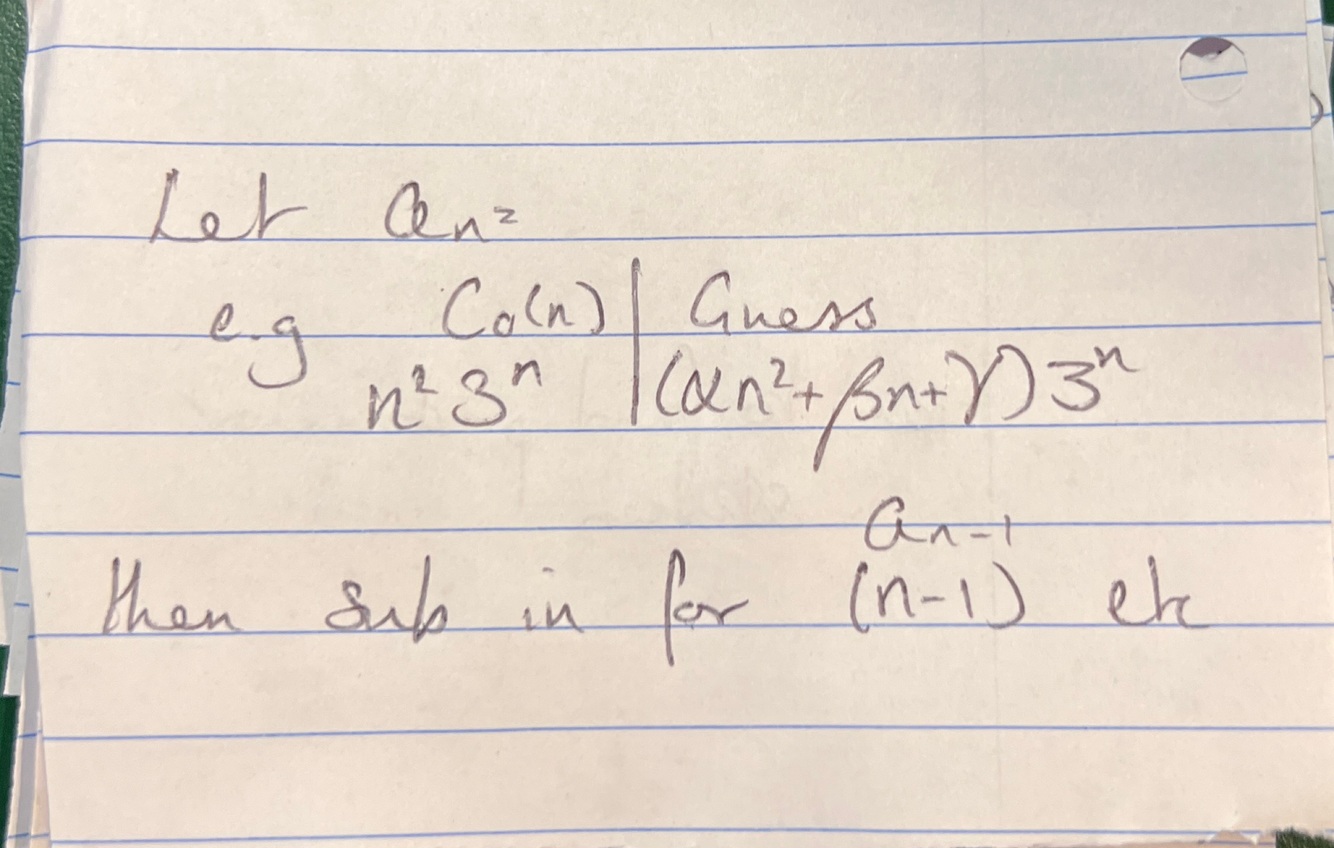 Let aₙ =
e.g C₀(n) | Guess
n²3ⁿ | (αn² + βn + γ)3ⁿ
aₙ₋₁
then sub in for (n-1) etc